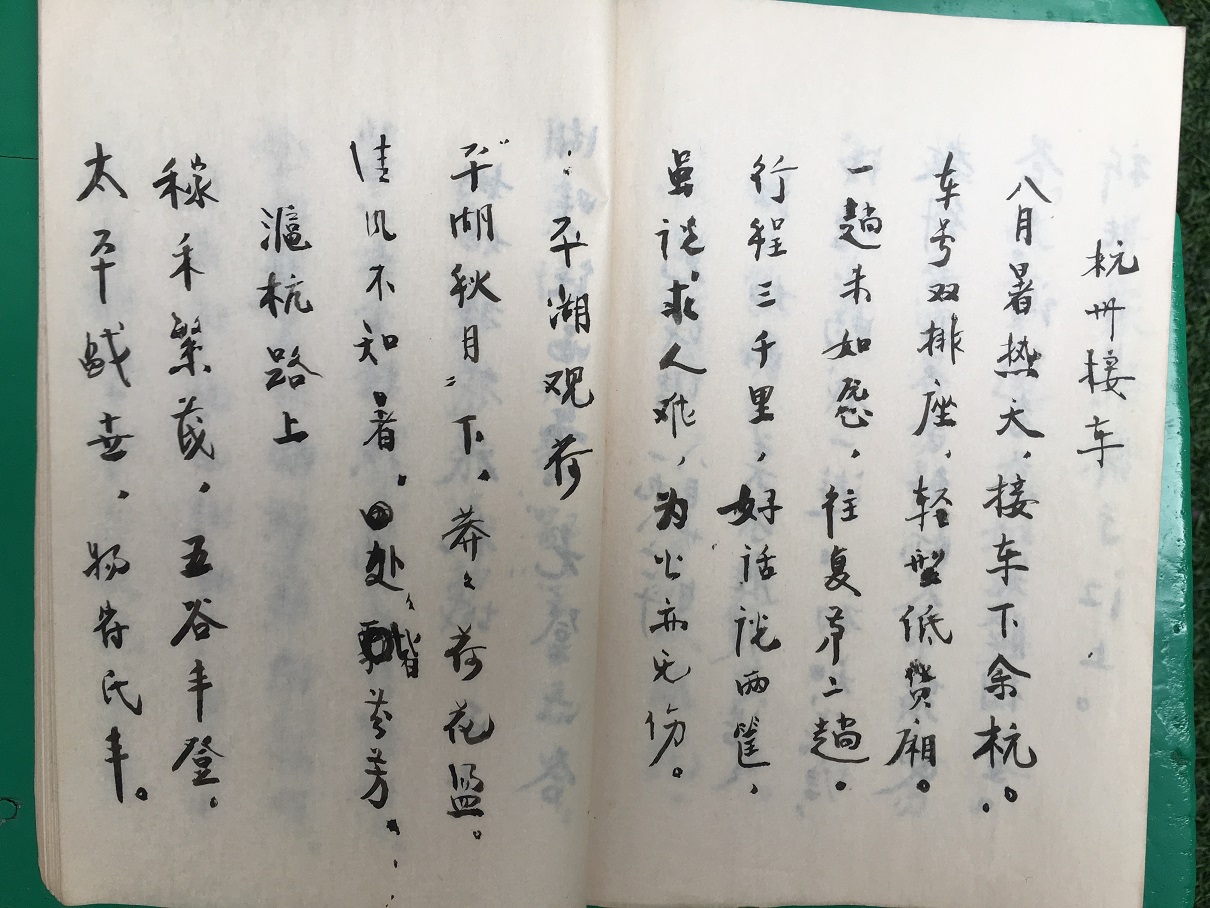 杭州接车
八月暑热天，接车下余杭。
车号双排座，轻型低货厢。
一趟未如愿，往复第二趟。
行程三千里，好话说两筐，
虽说求人难，为公亦无伤。
平湖观荷
“平湖秋月”下，莽々荷花盈。
佳风不知暑。处々皆芬芳。
滬杭路上
稼禾繁茂，五谷丰登。
太平盛世，物阜民丰。